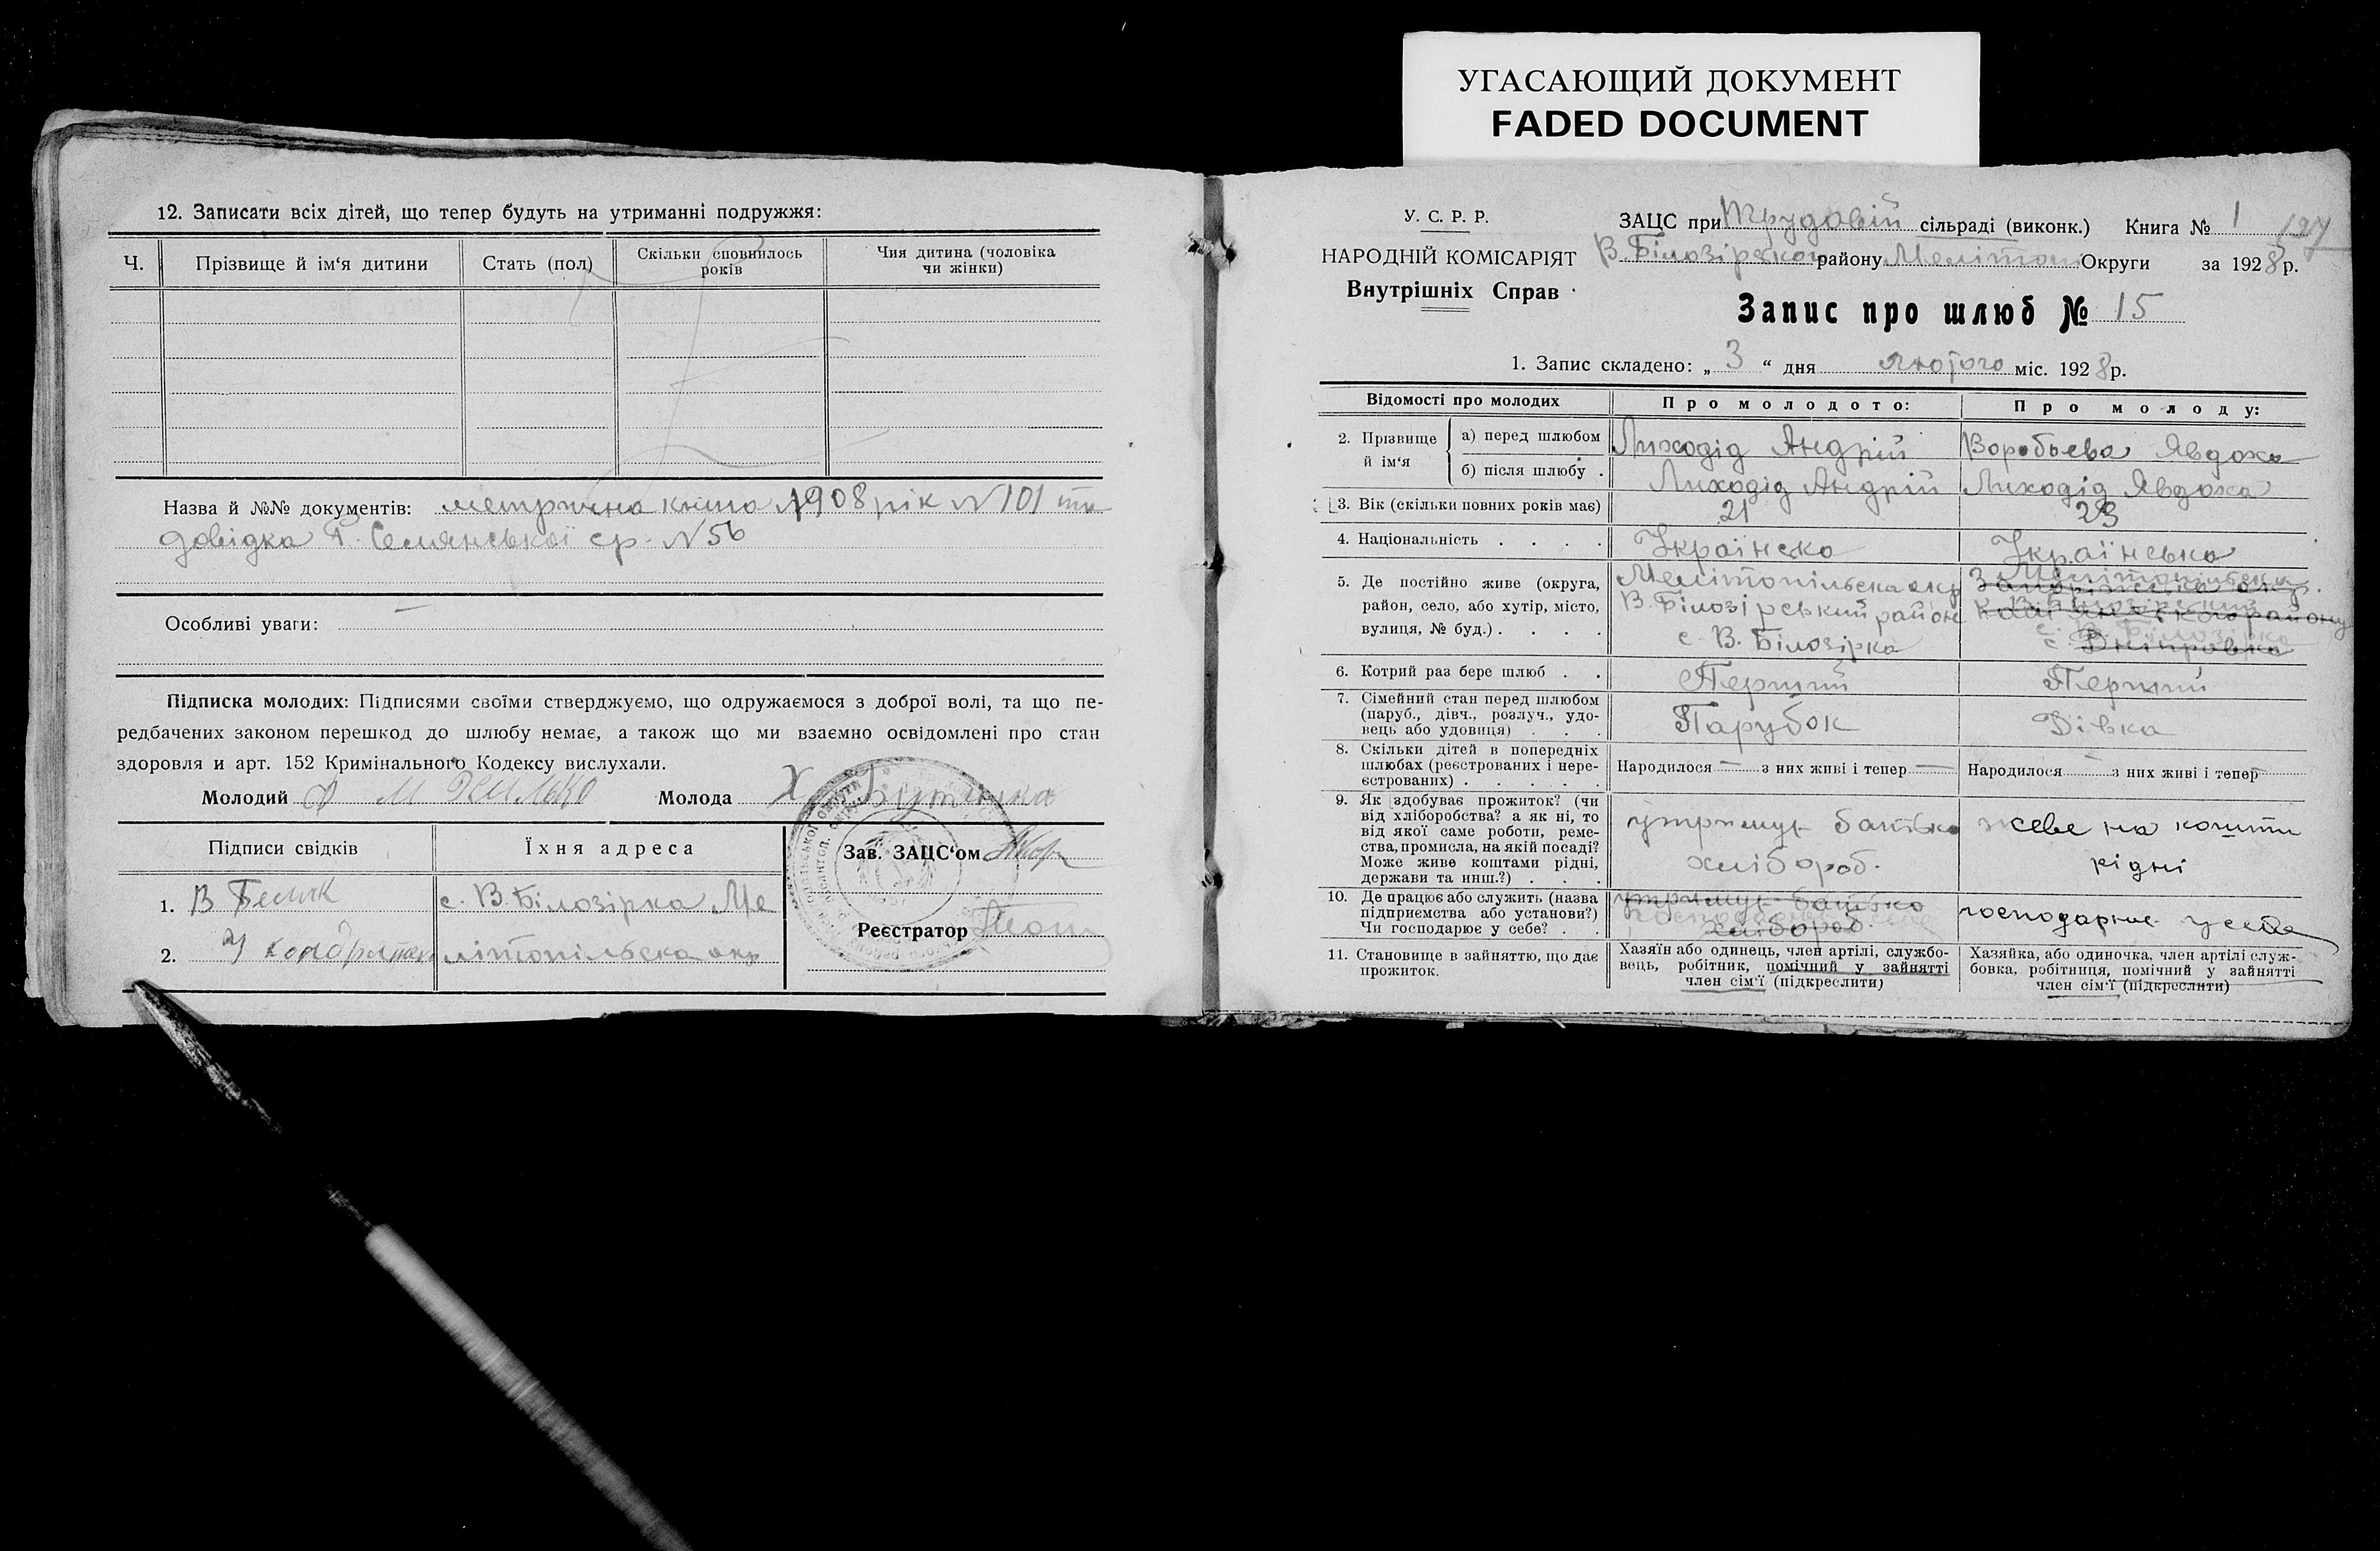 УГАСАЮЩИЙ ДОКУМЕНТ
FADED DOCUMENT
12. Записати всіх дітей, що тепер будуть на утриманні подружжя:
Ч. Прізвище й ім'я дитини Стать (пол) Скільки сповнилось років Чия дитина (чоловіка чи жінки)
Назва й №№ документів: метрична книга 1908 рік N 101 та
довідка Семянської ср. N 56
Особливі уваги:
Підписка молодих: Підписями своїми стверджуємо, що одружаємося з доброї волі, та що пе-
редбачених законом перешкод до шлюбу немає, а також що ми взаємно освідомлені про стан
здоровля и арт. 152 Кримінального Кодексу вислухали.
Молодий Молода Х
Підписи свідків Їхня адреса Зав. ЗАЦС'ом
1. с. В. Білозірка Ме
Реєстратор
2. літопільська окр
У. С. Р. Р.
НАРОДНІЙ КОМІСАРІЯТ
Внутрішніх Справ
ЗАЦС при Трудовій сільраді (виконк.) Книга № 1 127
В. Білозірському району Мелітоп Округи за 1928 р.
Запис про шлюб № 15
1. Запис складено: „ 3 “ дня лютого міс. 1928 р.
Відомості про молодих Про молодого: Про молоду:
2. Прізвище й ім'я
а) перед шлюбом Лиходід Андрій Воробьева Явдоха
б) після шлюбу Лиходід Андрій Лиходід Явдоха
3. Вік (скільки повних років має) 21 23
4. Національність Українско Українська
5. Де постійно живе (округа, район, село, або хутір, місто, вулиця, № буд.)
Мелітопільска окр
В. Білозірський район
с В. Білозірка
Мелітопільска
Запоріжська окр.
В. Білозірський
району
с. В. Білозірка
с. Дніпровка
6. Котрий раз бере шлюб Перший Перший
7. Сімейний стан перед шлюбом (паруб., дівч., розлуч., удо-
вець або удовиця) Парубок Дівка
8. Скільки дітей в попередніх
шлюбах (реєстрованих і нере-
єстрованих) Народилося — з них живі і тепер — Народилося — з них живі і тепер
9. Як здобуває прожиток? (чи
від хліборобства? а як ні, то
від якої саме роботи, реме-
ства, промисла, на якій посаді?
Може живе коштами рідні,
держави та инш.?)
утримує батько
хлібороб.
живе на кошти
рідні
10. Де працює або служить (назва
підприємства або установи?)
Чи господарює у себе?
утримує батько
хлібороб
господарює у себе
11. Становище в зайняттю, що дає
прожиток.
Хазяїн або одинець, член артілі, службо-
вець, робітник, помічний у зайнятті
член сім'ї (підкреслити)
Хазяйка, або одиночка, член артілі служ-
бовка, робітниця, помічний у зайнятті
член сім'ї (підкреслити)